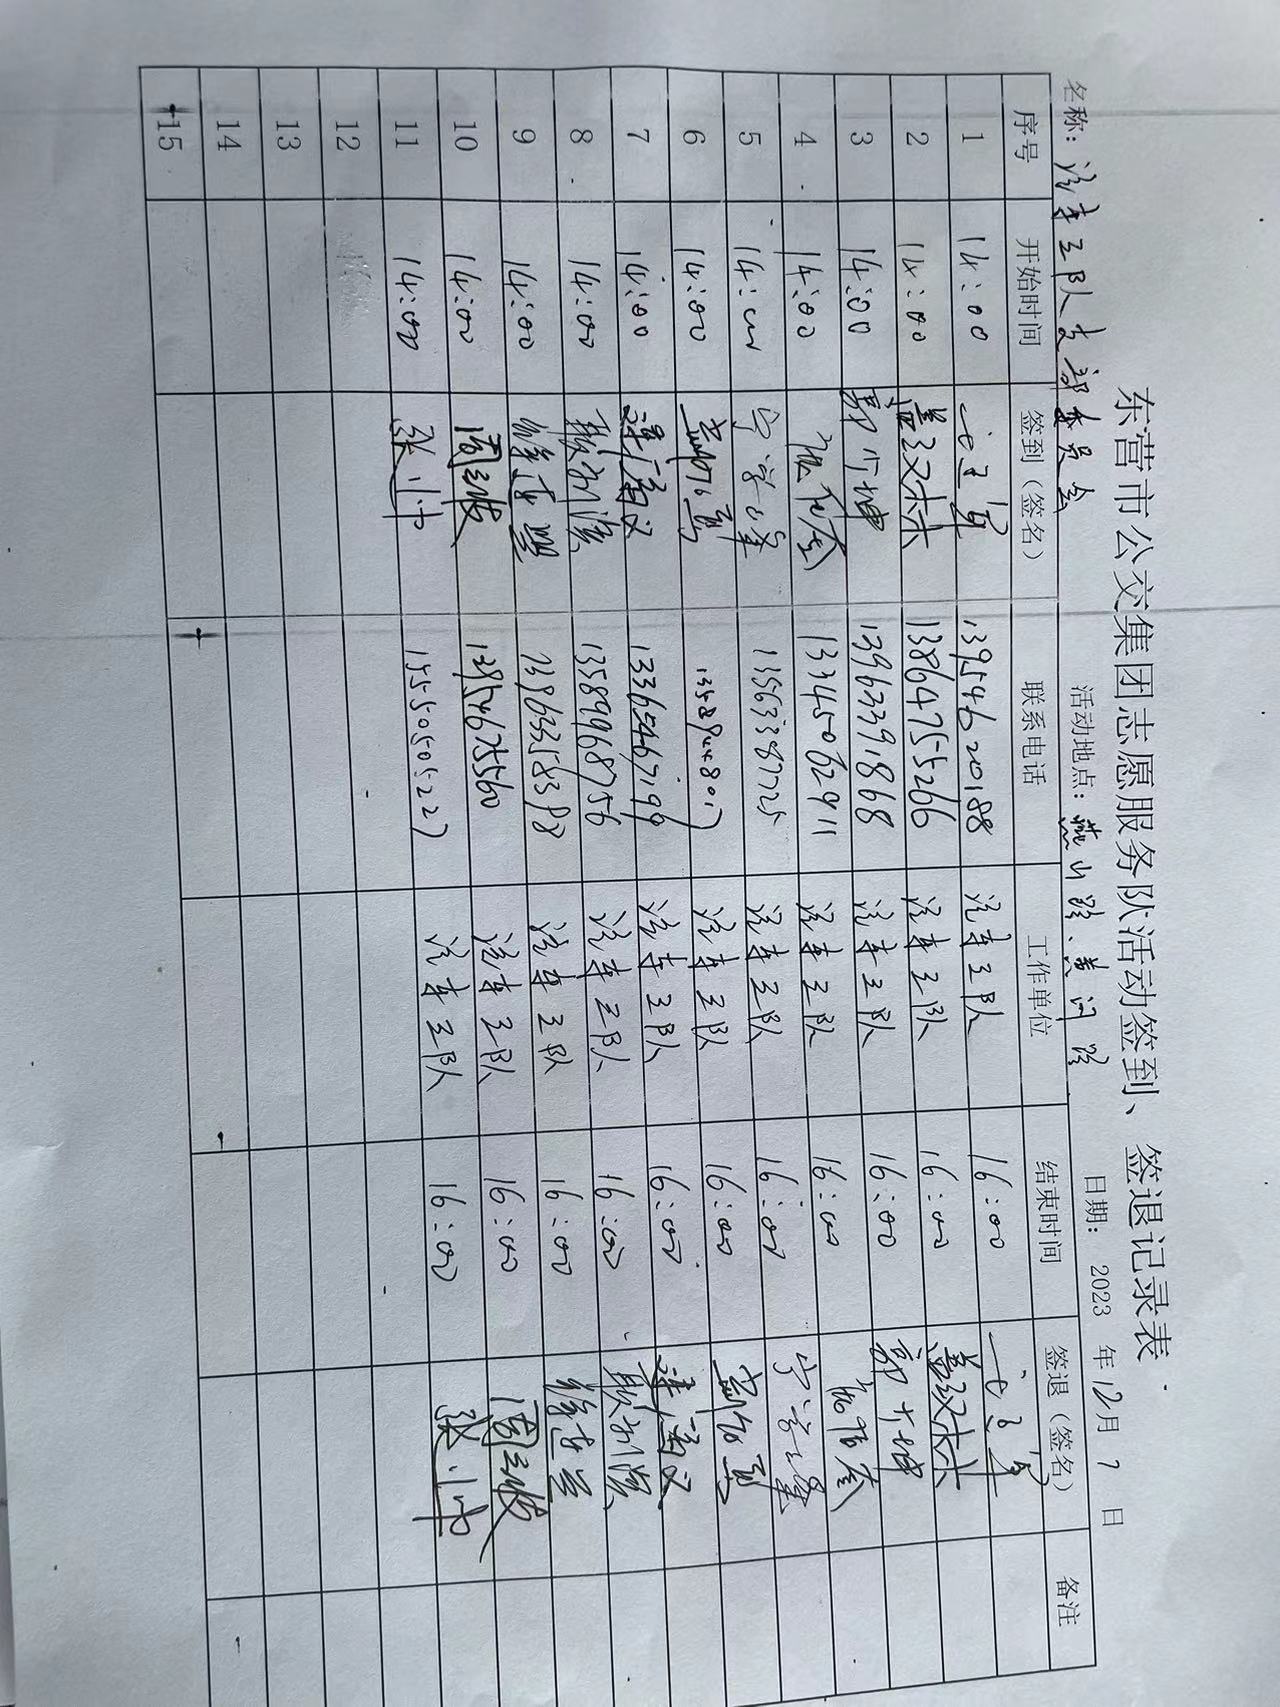 东营市公交集团志愿服务队活动签到、签退记录表
名称：汽车三队支部委员会 活动地点：燕山路、黄河路 日期：2023年12月7日
序号 开始时间 签到（签名） 联系电话 工作单位 结束时间 签退（签名） 备注
1 14:00 13954620188 汽车三队 16:00
2 14:00 盖双林 13864755266 汽车三队 16:00 盖双林
3 14:00 13963391868 汽车三队 16:00
4 14:00 13345062911 汽车三队 16:00
5 14:00 宁学峰 13563387725 汽车三队 16:00 宁学峰
6 14:00 汽车三队 16:00
7 14:00 13365467199 汽车三队 16:00
8 14:00 13589968756 汽车三队 16:00
9 14:00 汽车三队 16:00
10 14:00 周三波 13954675560 汽车三队 16:00 周三波
11 14:00 张小冲 15550505227 汽车三队 16:00 张小冲
12
13
14
15